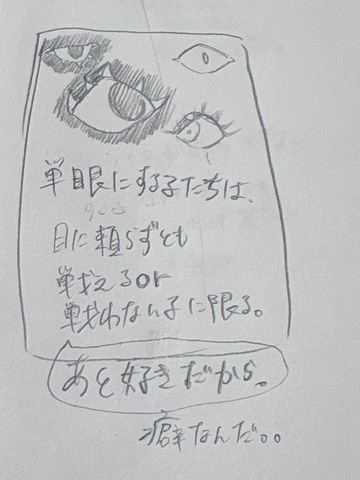 単眼にする子たちは、
目に頼らずとも
戦えるor
戦わない子に限る。
あと好きだから。
癖なんだ。。